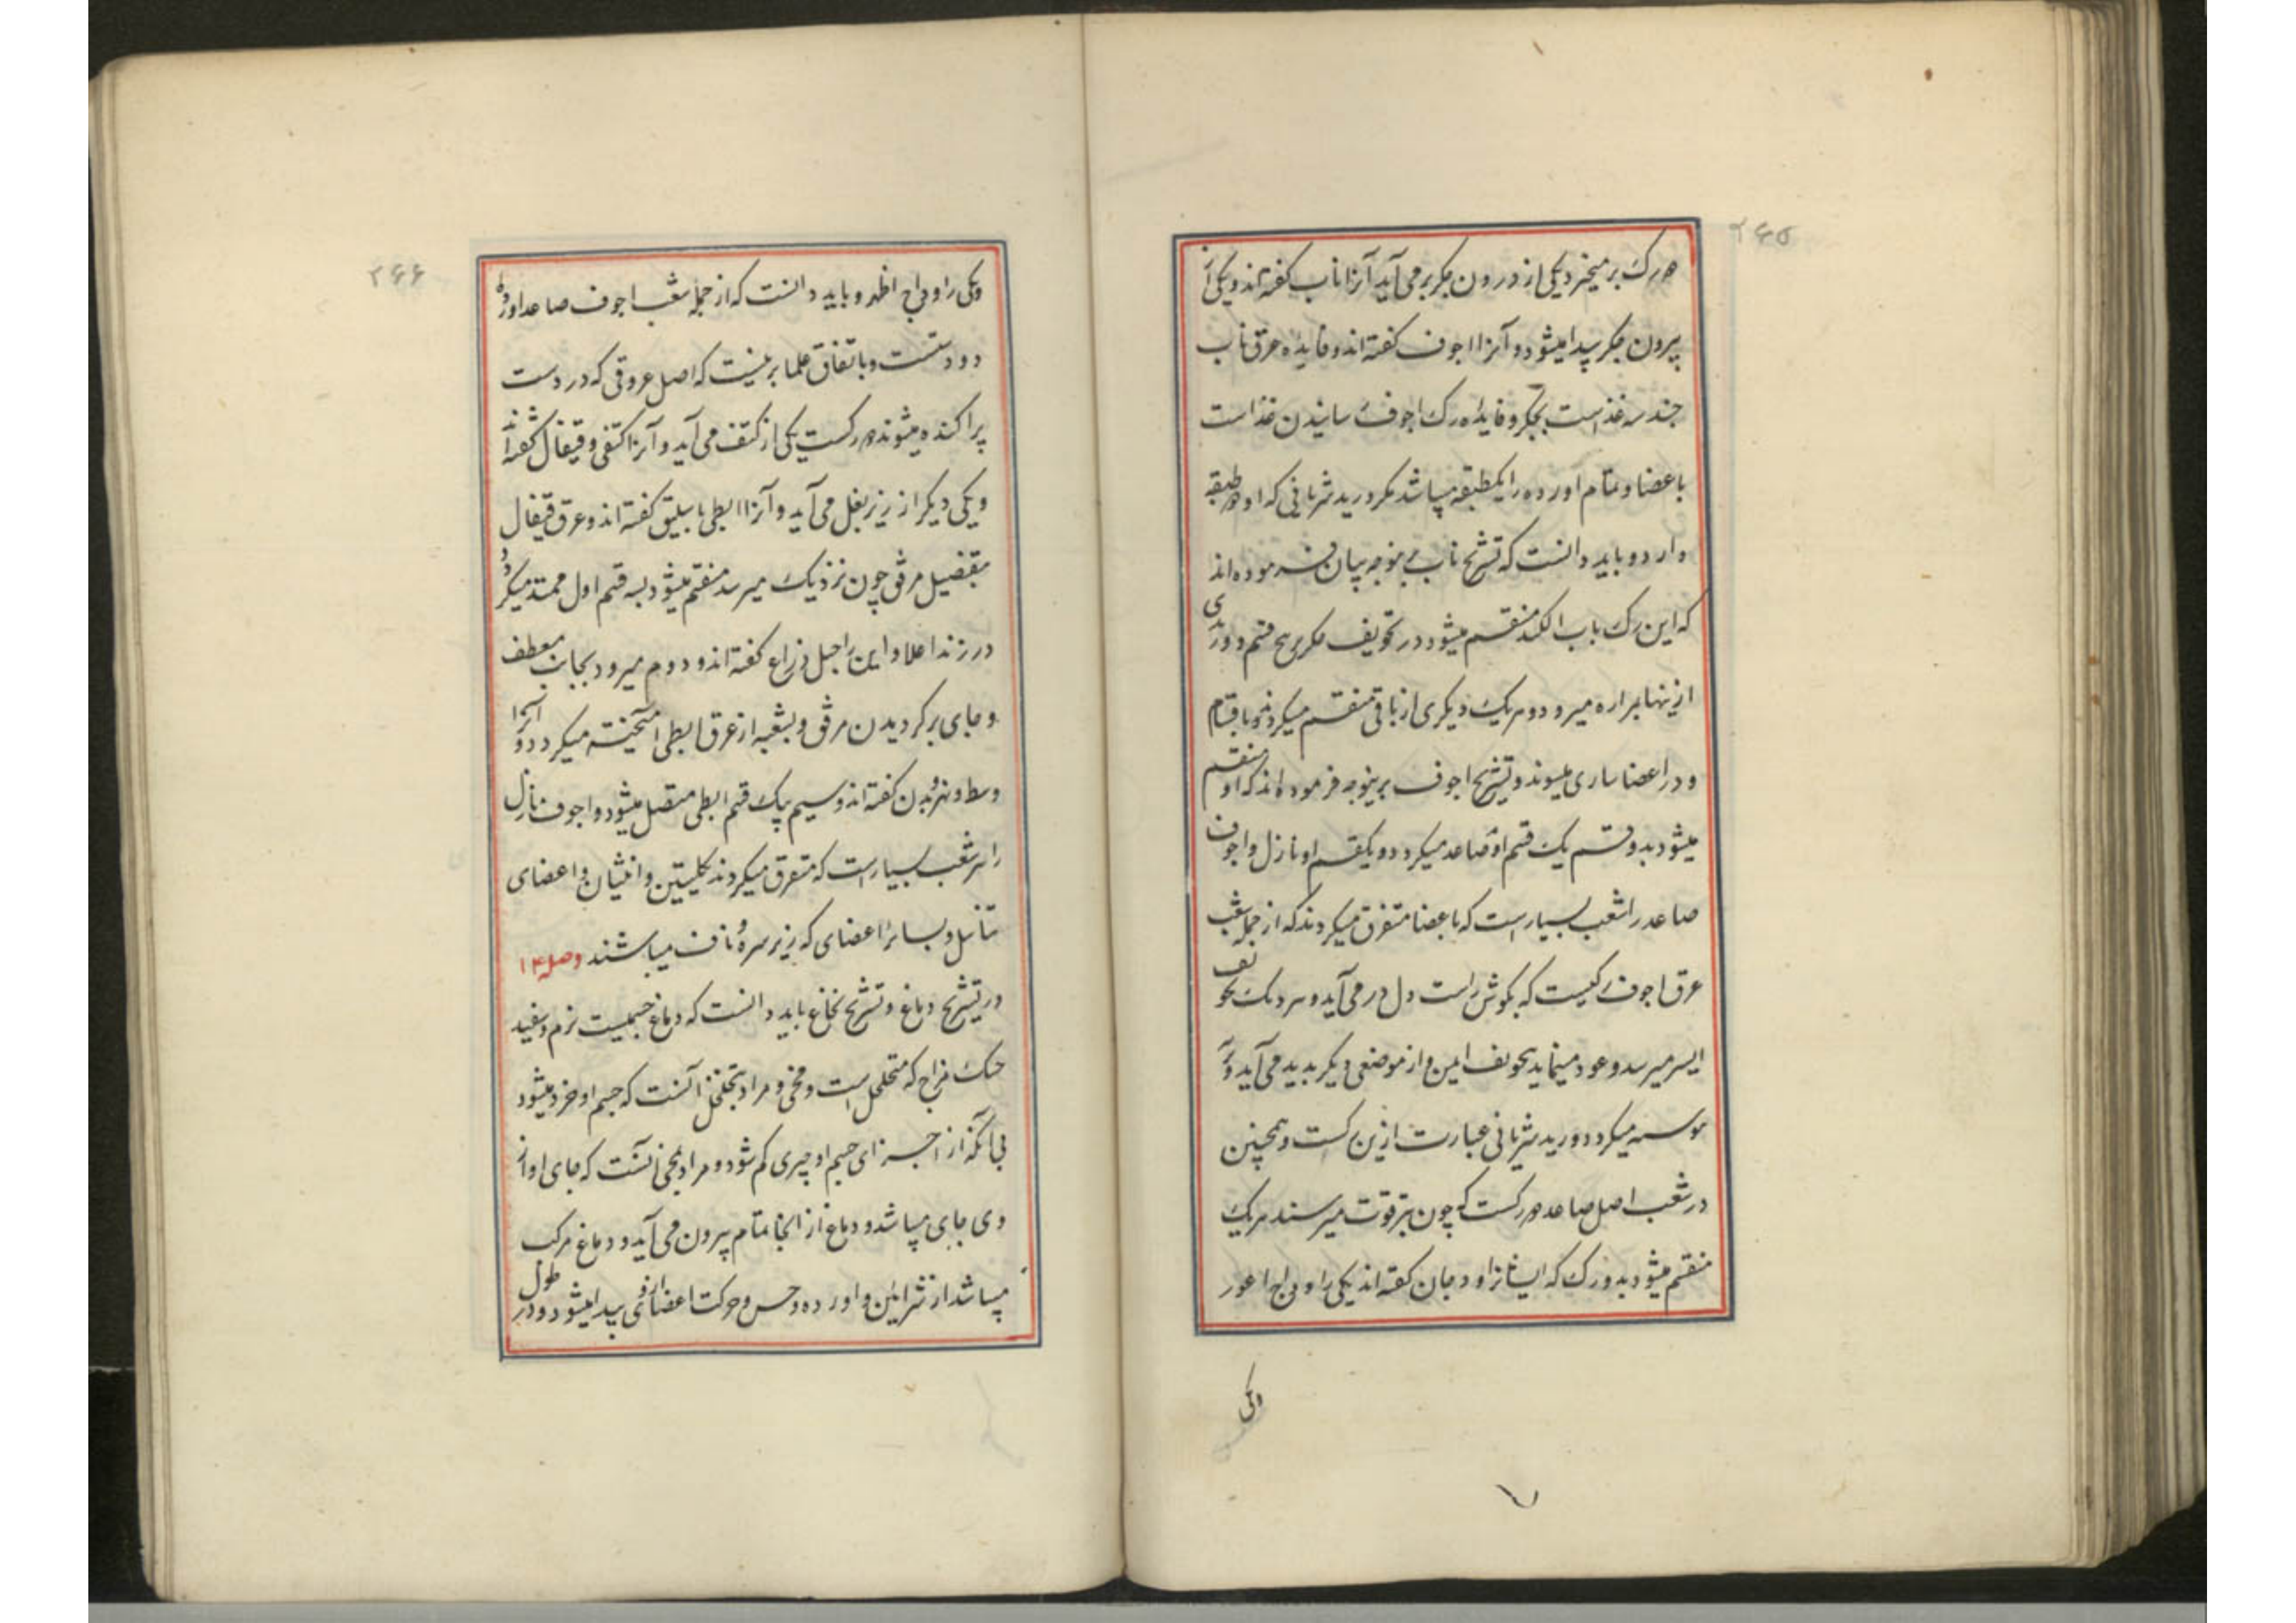 ۲۶۵
دو رک برمیخیزد یکی از درون جکر برمی آید آنرا باب کفته اند و یکی از
بیرون جکر پیدا میشود و آنرا اجوف کفته اند و فایده عرق باب
جذب غذاست بجکر و فایده رک اجوف رسانیدن غذاست
باعضا و تمام اورده را یکطبقه میباشد مکر ورید شریانی که او دو طبقه
دارد و باید دانست که تشریح باب برینوجه بیان فرموده اند
که این رک باب منقسم میشود در تجویف جکر به پنج قسم و وریدی
ازینها بمراره میرود و هریک دیکری از باقی منقسم میکردند باقسام
و در اعضا ساری میشوند و تشریح اجوف برینوجه فرموده اند که او منقسم
میشود بدو قسم یک قسم او صاعد میکردد و یکقسم او نازل و اجوف
صاعد را شعب بسیارست که باعضا متفرق میکردند که از جمله شعب
عرق اجوف رکیست که بکوش راست دل در می آید و بتجویف
ایسر میرسد و عود مینماید بتجویف ایمن و از موضعی دیکر پدید می آید و
میکردد و ورید شریانی عبارت ازین رکست و همچنین
در شعب اصل صاعد دو رکست که چون بترقوت میرسند هریک
منقسم میشود بدو رک که ایشانرا ودجان کفته اند یکی را وداج اغور
ویکی
۲۶۶
ویکی را وداج اظهر و باید دانست که از جمله شعب اجوف صاعد اورده
دو دستست و باتفاق علما برینست که اصل عروقی که در دست
پراکنده میشوند دو رکست یکی از کتف می آید و آنرا کتفی و قیفال کفته اند
و یکی دیکر از زیر بغل می آید و آنرا ابطی باسلیق کفته اند و عرق قیفال
بمفصل مرفق چون نزدیک میرسد منقسم میشود بسه قسم اول ممتد میکردد
در زند اعلا و این را حبل ذراع کفته اند و دوم میرود بجانب معطف
و جای برکردیدن مرفق و بشعبه از عرق ابطی آمیخته میکردد و آنرا
وسط و نهر بدن کفته اند و سیم بیک قسم ابطی متصل میشود و اجوف نازل
را شعب بسیار است که متفرق میکردند بکلیتین و انثیان و اعضای
تناسل و بسائر اعضای که زیر سره و ناف میباشند وصل ۱۴
در تشریح دماغ و تشریح نخاع باید دانست که دماغ جسمیست نرم و سفید
خنک مزاج که متخلخل است و مخی و مراد بتخلخل آنست که جسم او خرد میشود
بی آنکه از اجزای جسم او چیزی کم شود و مراد بمخی آنست که جای او از
وی جای میباشد و دماغ از انجا تمام بیرون می آید و دماغ مرکب
میباشد از شرایین و اورده و حس و حرکت اعضا از وی پیدا میشود و در طول